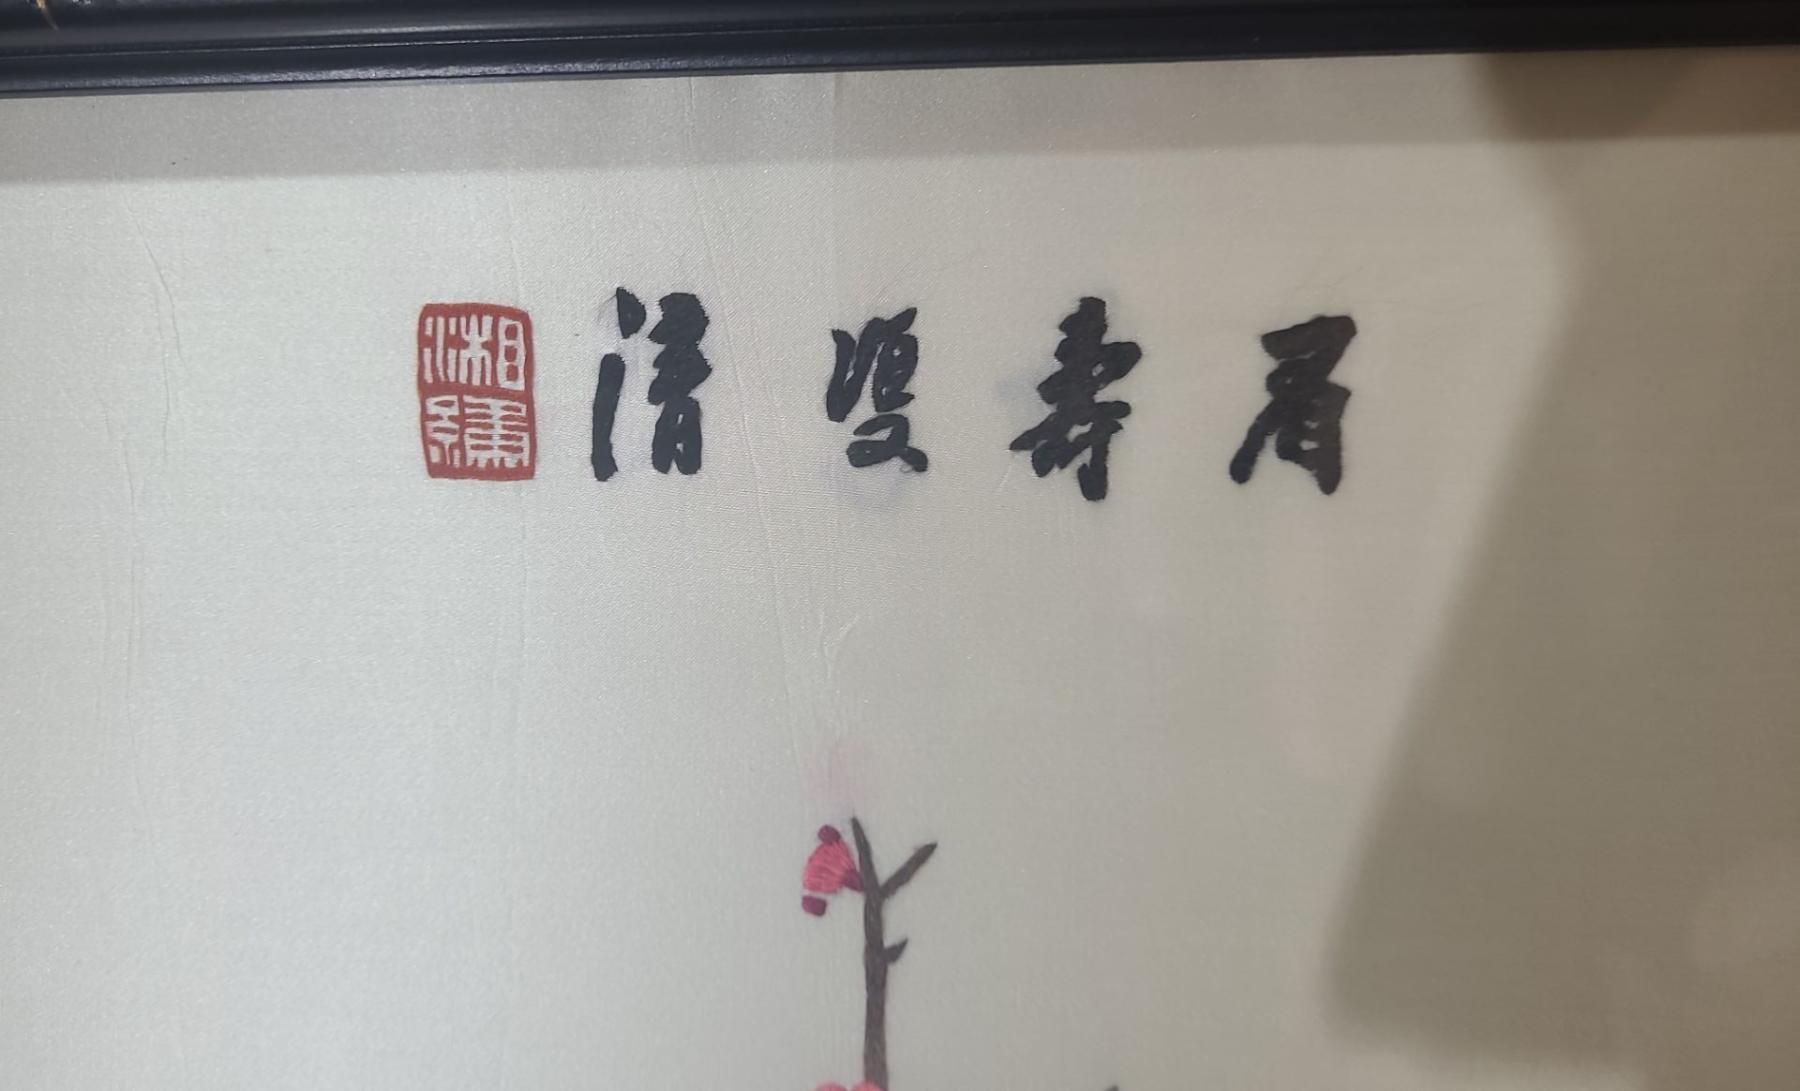 眉壽雙清
湘繡